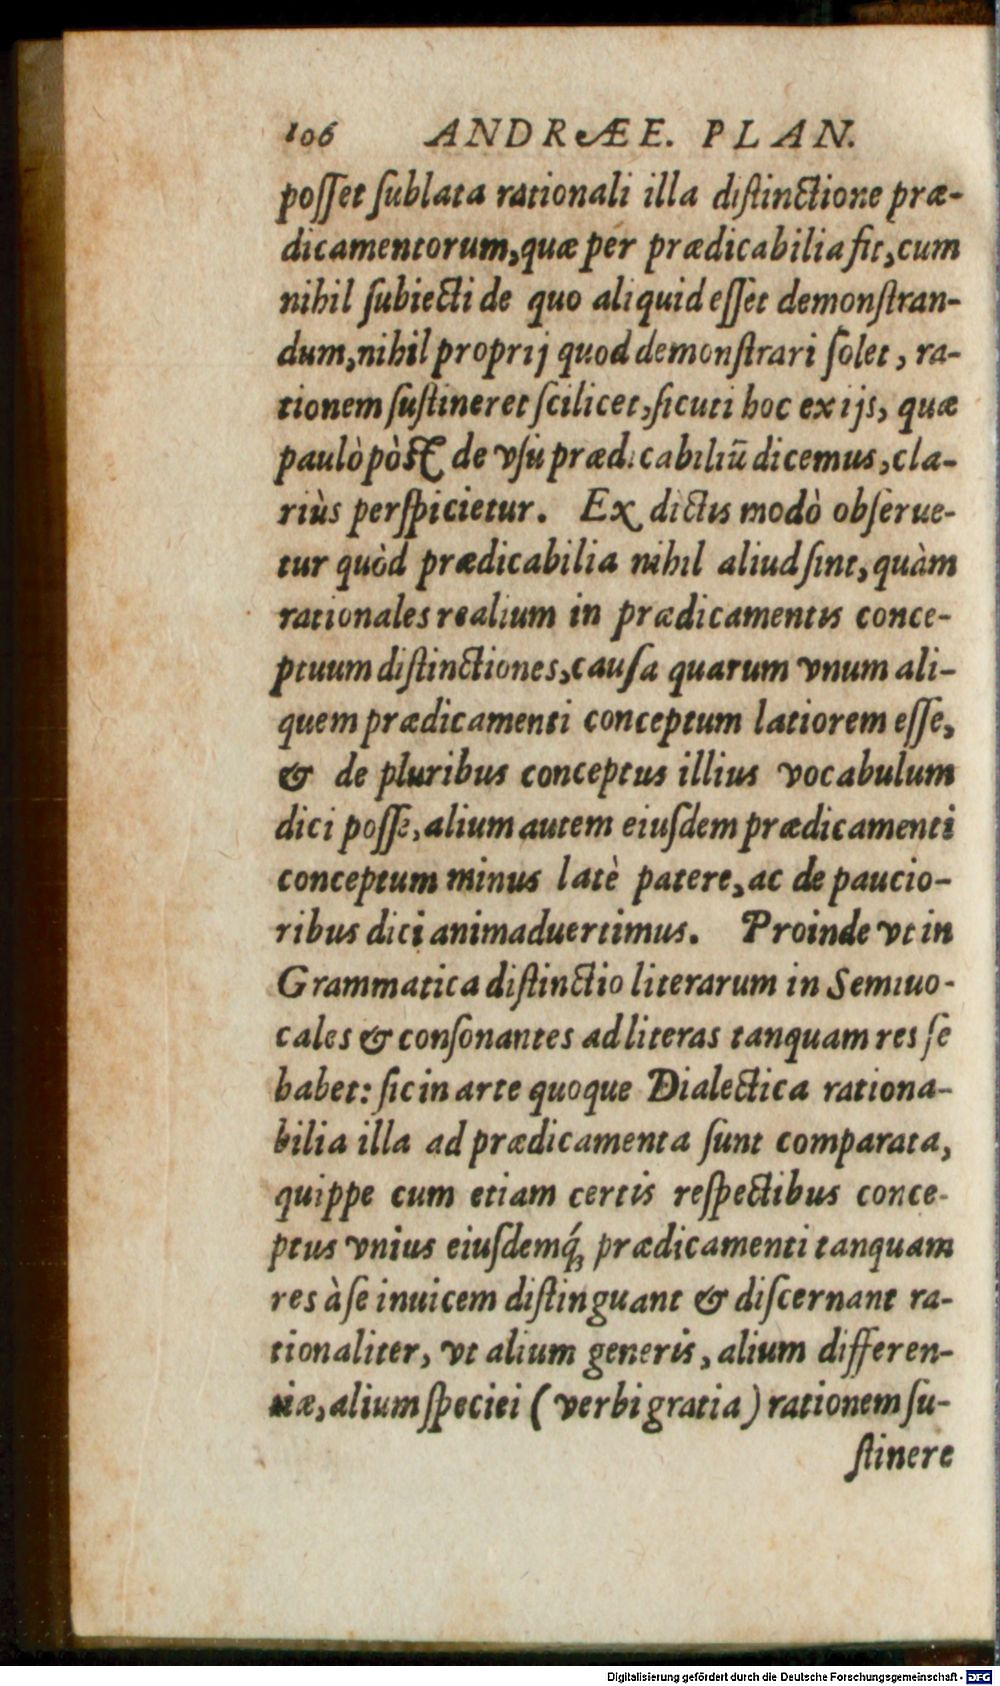 106 ANDRÆE. PLAN.
posſet ſublata rationali illa diſtinctione præ-
dicamentorum, quæ per prædicabilia fit, cum
nihil ſubiecti de quo aliquid eſſet demonſtran-
dum, nihil proprij quod demonſtrari ſolet, ra-
tionem ſuſtineret ſcilicet, ſicuti hoc ex ijs, quæ
paulò pòſt de vſu prædicabiliũ dicemus, cla-
riùs perſpicietur. Ex dictis modò obſerue-
tur quòd prædicabilia nihil aliud ſint, quàm
rationales realium in prædicamentis conce-
ptuum diſtinctiones, cauſa quarum vnum ali-
quem prædicamenti conceptum latiorem eſſe,
& de pluribus conceptus illius vocabulum
dici poſſe, alium autem eiuſdem prædicamenti
conceptum minus latè patere, ac de paucio-
ribus dici animaduertimus. Proinde vt in
Grammatica diſtinctio literarum in Semiuo-
cales & conſonantes ad literas tanquam res ſe
habet: ſic in arte quoque Dialectica rationa-
bilia illa ad prædicamenta ſunt comparata,
quippe cum etiam certis reſpectibus conce-
ptus vnius eiuſdemq́; prædicamenti tanquam
res à ſe inuicem diſtinguant & diſcernant ra-
tionaliter, vt alium generis, alium differen-
tiæ, alium ſpeciei (verbi gratia) rationem ſu-
ſtinere
Digitalisierung gefördert durch die Deutsche Forschungsgemeinschaft - DFG